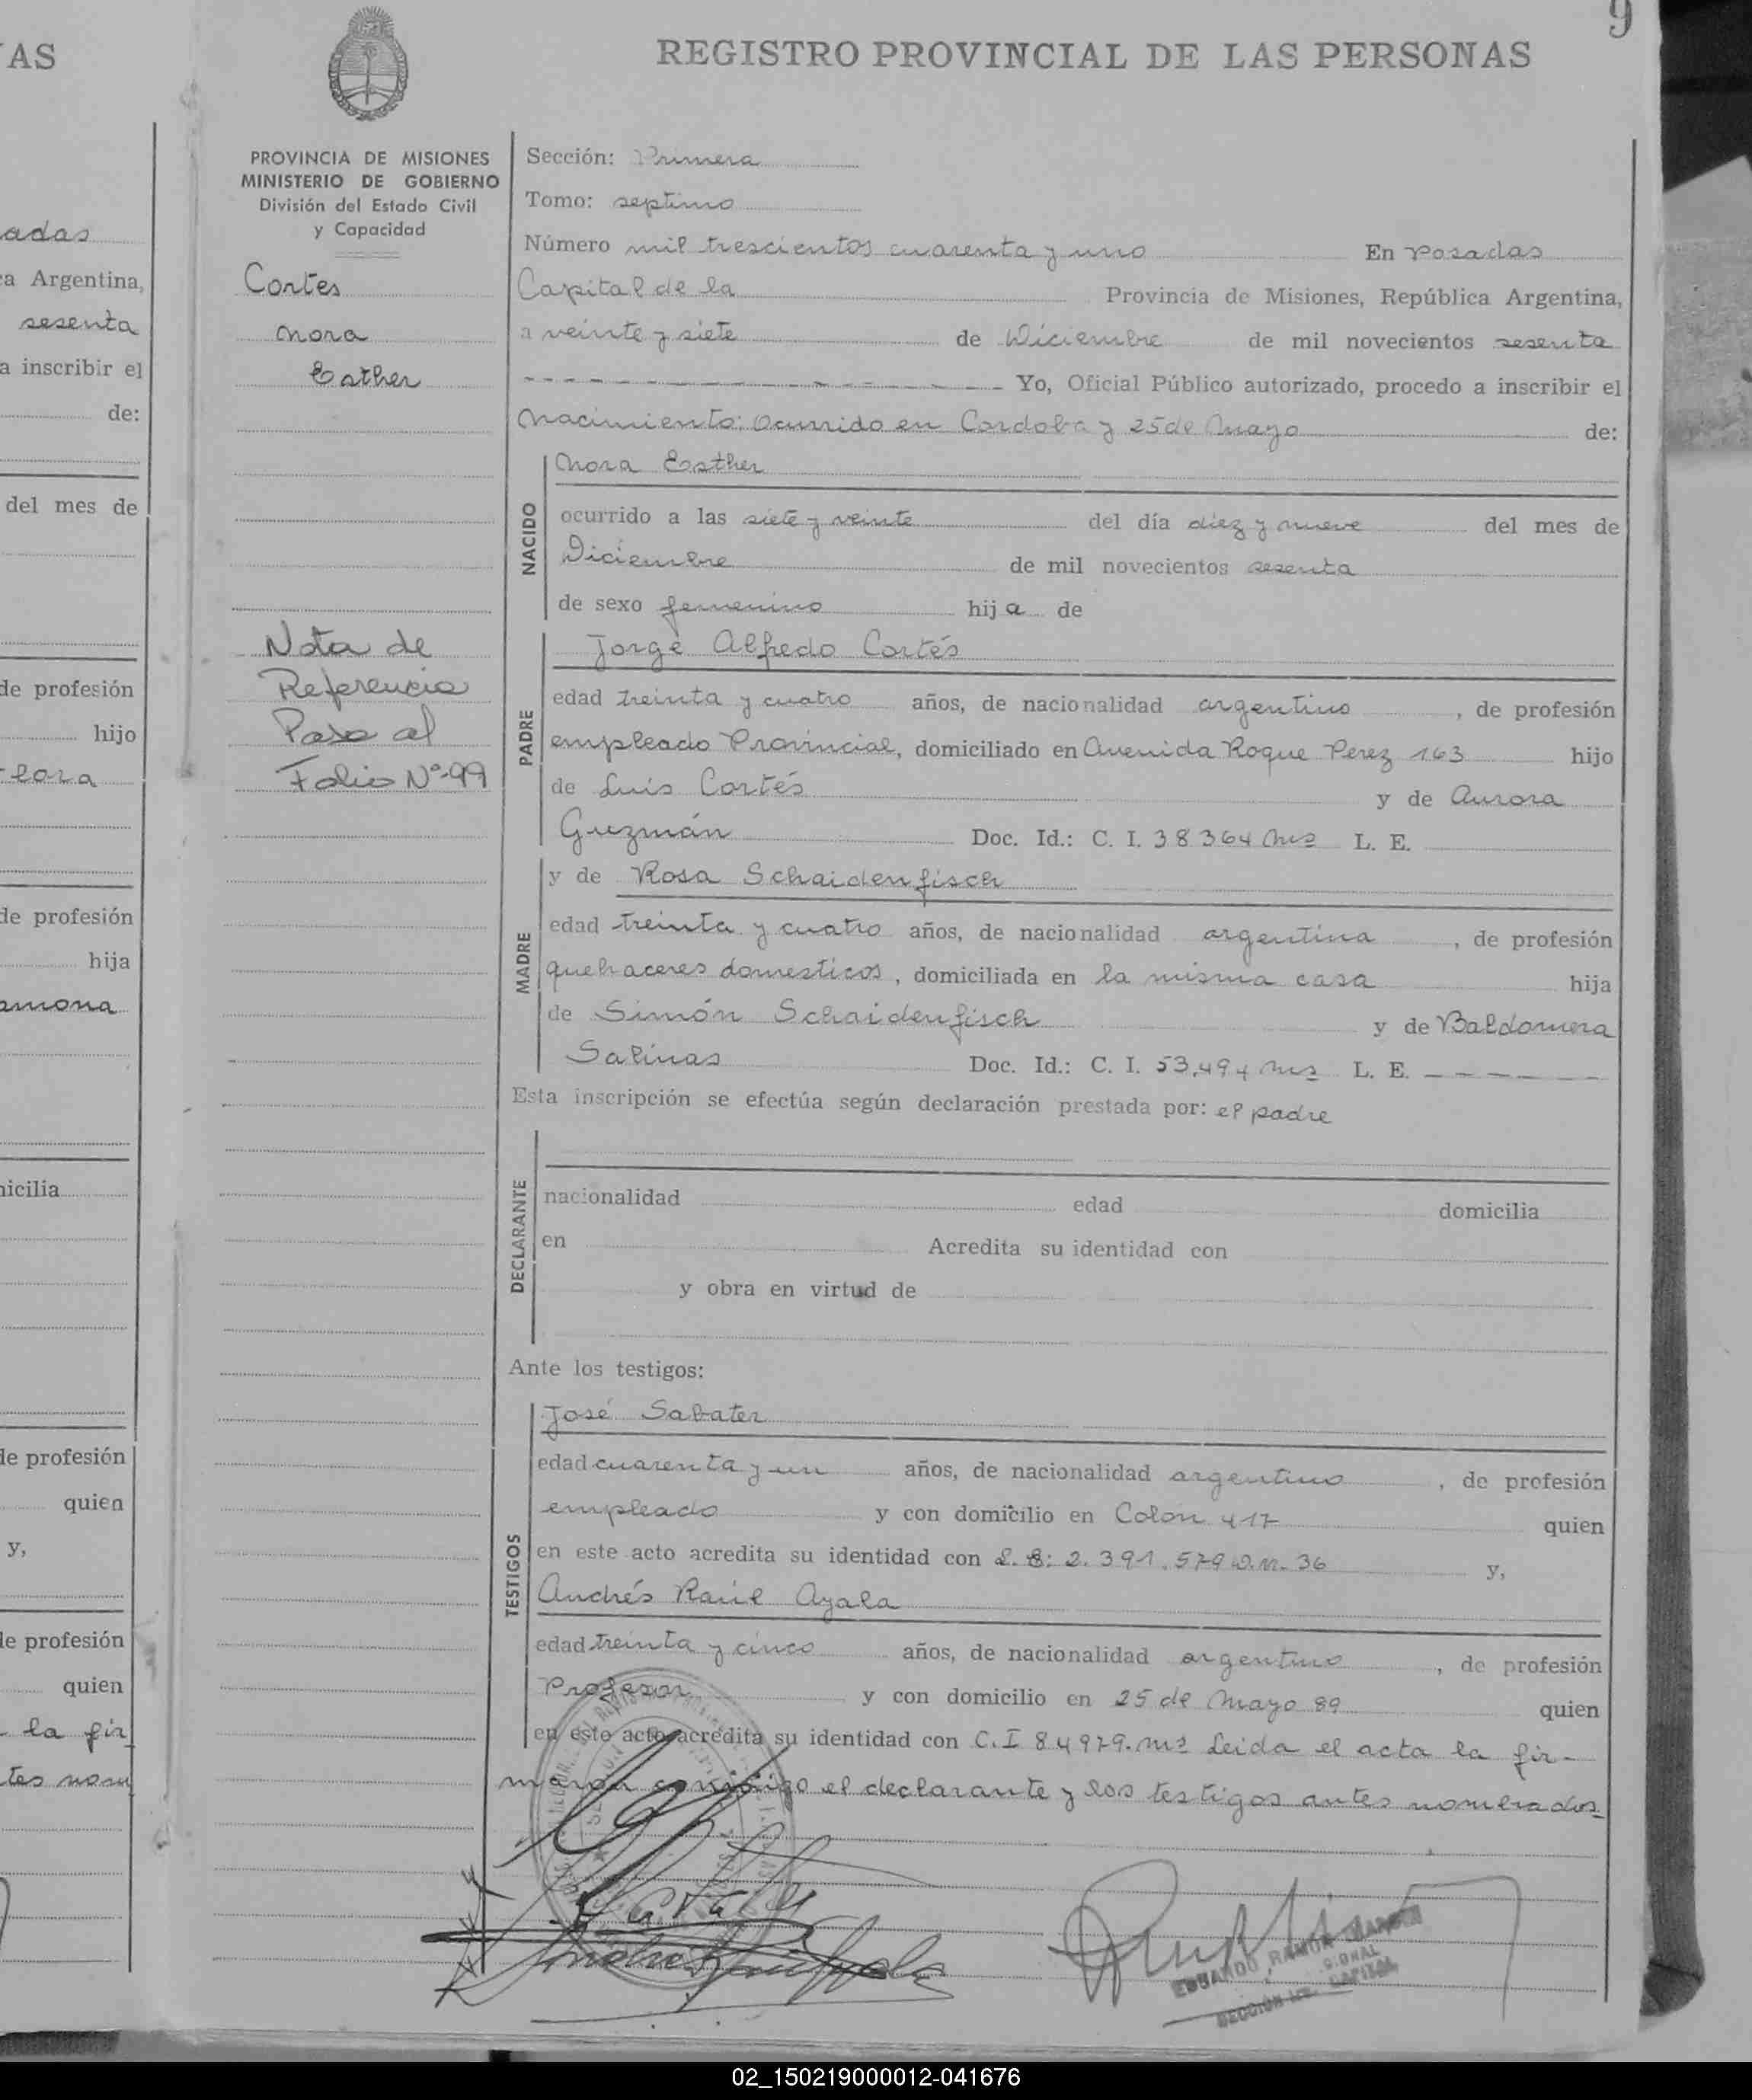 9
REGISTRO PROVINCIAL DE LAS PERSONAS
PROVINCIA DE MISIONES
MINISTERIO DE GOBIERNO
División del Estado Civil
y Capacidad
Cortes
Nora
Esther
Nota de
Referencia
Pasa al
Folio Nº-99
Sección: Primera
Tomo: septimo
Número mil trescientos cuarenta y uno En Posadas
Capital de la Provincia de Misiones, República Argentina,
a veinte y siete de Diciembre de mil novecientos sesenta
Yo, Oficial Público autorizado, procedo a inscribir el
Nacimiento: Ocurrido en Cordoba y 25 de Mayo de:
NACIDO
Nora Esther
ocurrido a las siete y veinte del día diez y nueve del mes de
Diciembre de mil novecientos sesenta
de sexo femenino hija de
PADRE
Jorge Alfredo Cortés
edad treinta y cuatro años, de nacionalidad argentino, de profesión
empleado Provincial, domiciliado en Avenida Roque Perez 163 hijo
de Luis Cortés y de Aurora
Guzmán Doc. Id.: C. I. 38364 Mns L. E.
MADRE
y de Rosa Schaidenfisch
edad treinta y cuatro años, de nacionalidad argentina, de profesión
quehaceres domesticos, domiciliada en la misma casa hija
de Simón Schaidenfisch y de Baldomera
Salinas Doc. Id.: C. I. 53,494 Mns L. E. - - - - - -
Esta inscripción se efectúa según declaración prestada por: el padre
DECLARANTE
nacionalidad edad domicilia
en Acredita su identidad con
y obra en virtud de
Ante los testigos:
TESTIGOS
José Sabater
edad cuarenta y un años, de nacionalidad argentino, de profesión
empleado y con domicilio en Colón 417 quien
en este acto acredita su identidad con L. E: 2.391.579 D.M. 36 y,
Andrés Raúl Ayala
edad treinta y cinco años, de nacionalidad argentino, de profesión
Profesor y con domicilio en 25 de Mayo 89 quien
en este acto acredita su identidad con C.I 84979. Mns Leida el acta la fir-
maron conmigo el declarante y los testigos antes nombrados-
EDUARDO RAMON
CAPITAL
02_150219000012-041676